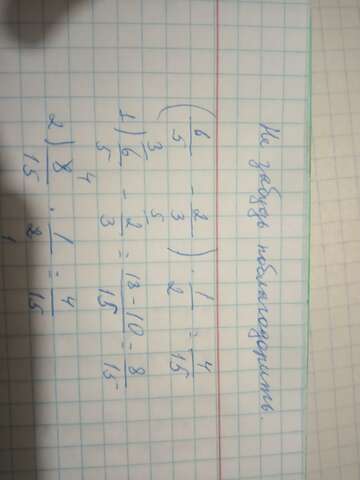 Не забудь поблагодарить.
(6/5 - 2/3) · 1/2 = 4/15
1) 6/5 ³ - 2/3 ⁵ = 18-10/15 = 8/15
2) 8/15 ⁴ · 1/2 ₁ = 4/15